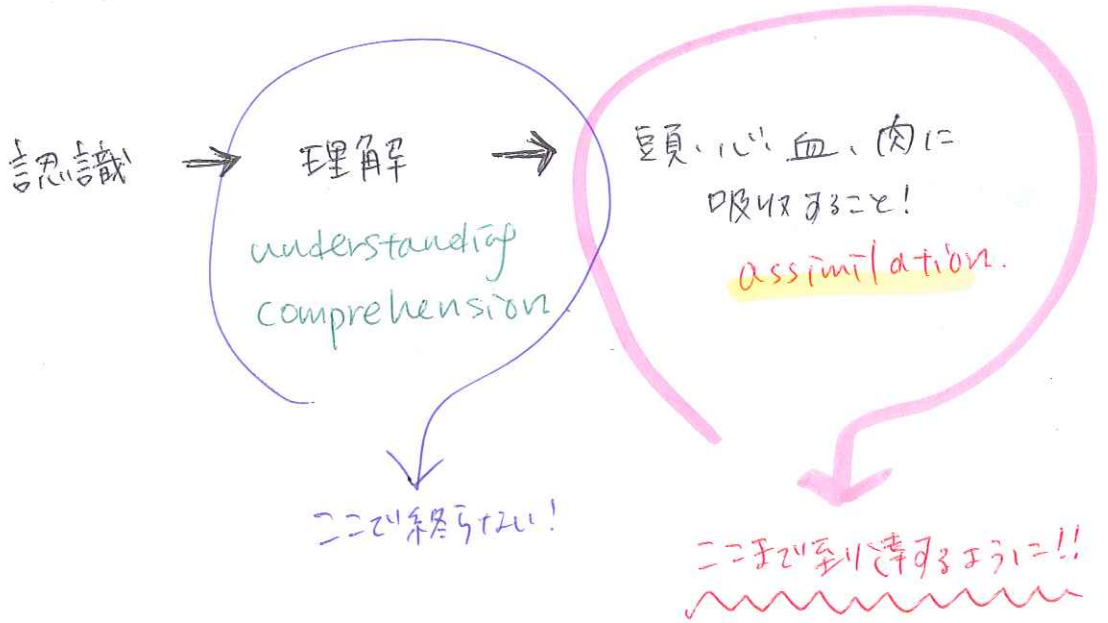 認識 → 理解 → 頭、心、血、肉に
吸収すること!
understanding
comprehension
assimilation.
ここで終らない!
ここまで到達するように!!